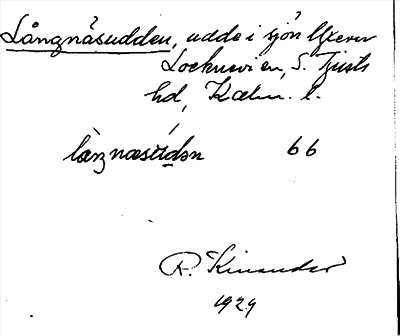 Långnäsudden, udde i sjön Yxern
Locknevi sn, S. Tjusts
hd, Kalm. l.
làŋnæsúdən 66
R. Kinander
1929